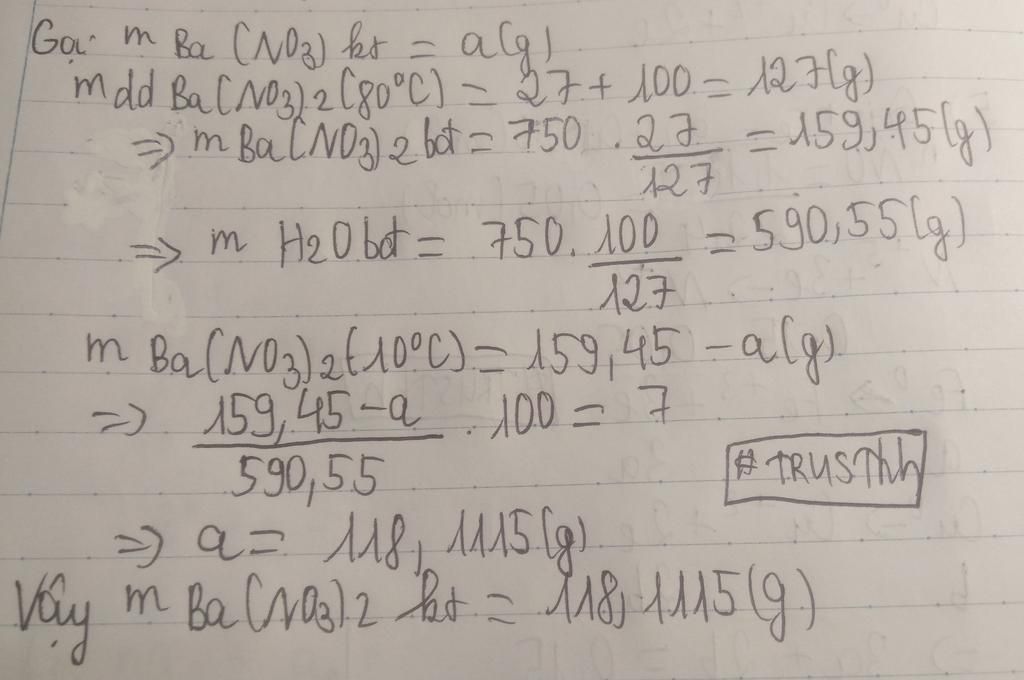 Gọi m Ba(NO3) kt = a(g)
mdd Ba(NO3)2(80°C) = 27 + 100 = 127(g)
=> m Ba(NO3)2 bđ = 750 . 27/127 = 159,45(g)
=> m H2O bđ = 750. 100/127 = 590,55(g)
m Ba(NO3)2 (10°C) = 159,45 - a(g)
=> (159,45 - a)/590,55 . 100 = 7
#TRUSThh
=> a = 118,1115(g)
Vậy m Ba(NO3)2 kt = 118,1115(g)